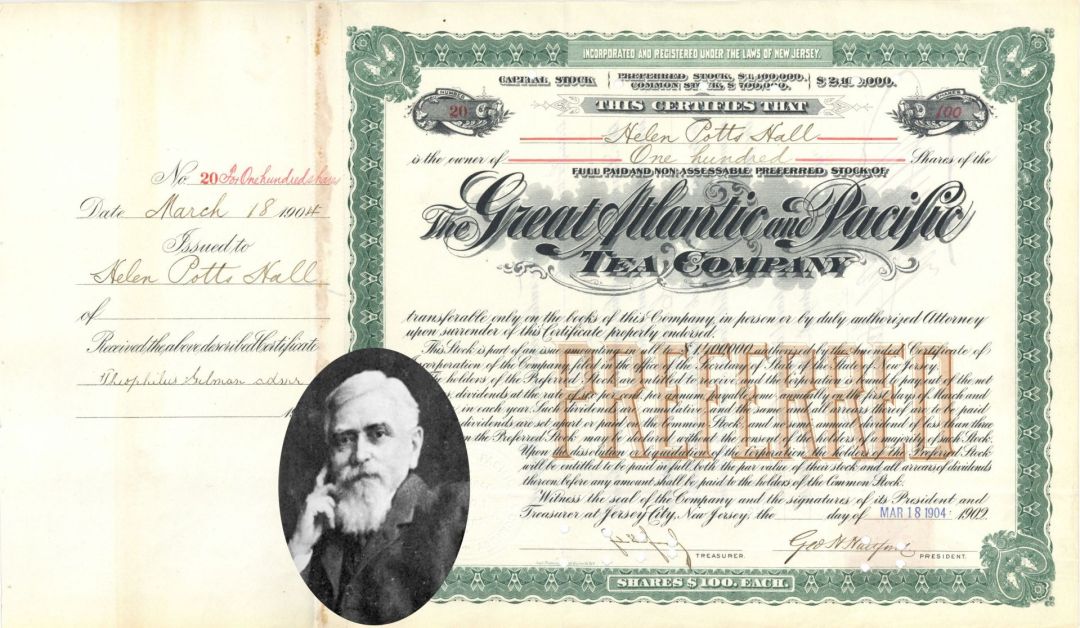 No. 20 For One hundred shares
Date March 18 1904
Issued to
Helen Potts Hall
of
Received the above described Certificate
Theophilus Gilman admr
INCORPORATED AND REGISTERED UNDER THE LAWS OF NEW JERSEY
CAPITAL STOCK PREFERRED STOCK, $1,400,000. COMMON STOCK, $700,000. $2,100,000.
NUMBER
20
THIS CERTIFIES THAT
SHARES
100
Helen Potts Hall
is the owner of One hundred Shares of the
FULL PAID AND NON ASSESSABLE PREFERRED STOCK OF
The Great Atlantic and Pacific
TEA COMPANY
transferable only on the books of this Company, in person or by duly authorized Attorney
upon surrender of this Certificate properly endorsed.
This Stock is part of an issue amounting in all to $1,400,000 authorized by the amended Certificate of
corporation of the Company filed in the office of the Secretary of State of the State of New Jersey.
The holders of the Preferred Stock are entitled to receive and the Corporation is bound to pay out of the net
dividends at the rate of six per cent. per annum, payable semi annually on the first days of March and
in each year. Such dividends are cumulative, and the same and all arrears thereof are to be paid
dividends are set apart or paid on the Common Stock, and no semi annual dividend of less than three
on the Preferred Stock may be declared without the consent of the holders of a majority of such Stock.
Upon dissolution or liquidation of the Corporation, the holders of the Preferred Stock
will be entitled to be paid in full, both the par value of their stock and all arrears of dividends
thereon, before any amount shall be paid to the holders of the Common Stock.
PREFERRED
Witness the seal of the Company and the signatures of its President and
Treasurer at Jersey City, New Jersey, the day of MAR 18 1904 1902
TREASURER.
Geo H Hartford
PRESIDENT.
SHARES $100. EACH.